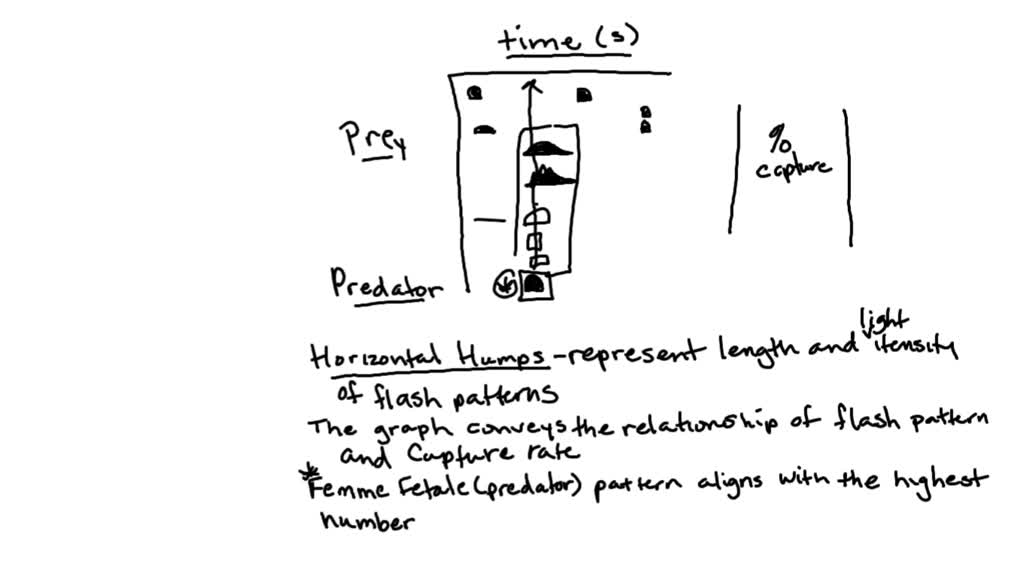 time (s)
Prey
%
capture
Predator
light
Horizontal Humps - represent length and itensity
of flash patterns
The graph conveys the relationship of flash pattern
and Capture rate
* Femme Fetale (predator) pattern aligns with the highest
number